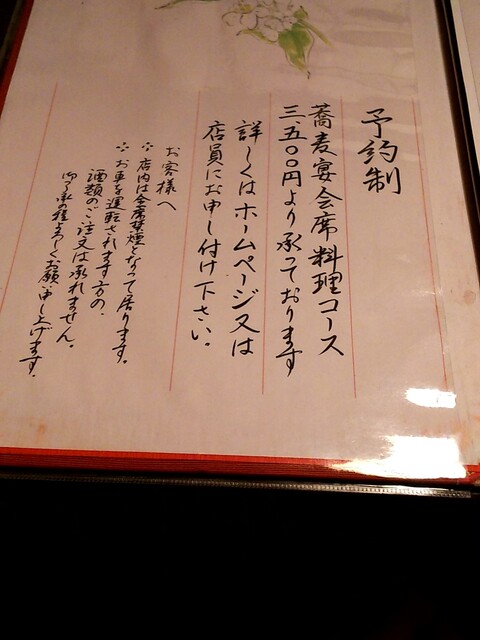 予約制
蕎麦宴会席料理コース
三、五〇〇円より承っております
詳しくはホームページ又は
店員にお申し付け下さい。
お客様へ
店内は全席禁煙となって居ります。
お車を運転されます方の、
酒類のご注文は承れません。
御了承の程よろしくお願い申し上げます。